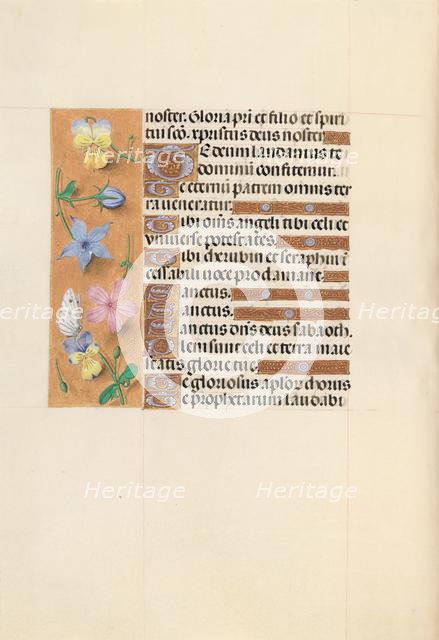 noster. Gloria pri et filio et spiri
tui sco. xpristus deus noster
Te deum laudamus te
dominum confitemur.
Te eternum patrem omnis ter
ra veneratur.
Tibi oms angeli tibi celi et
vniverse potestates.
Tibi cherubin et seraphin i
cessabili voce proclamant.
Sanctus.
Sanctus.
Sanctus dns deus sabaoth.
Pleni sunt celi et terra maie
statis glorie tue.
Te gloriosus aplor chorus
Te prophetarum laudabi
Heritage
Heritage
Heritage
Heritage
Heritage
Heritage